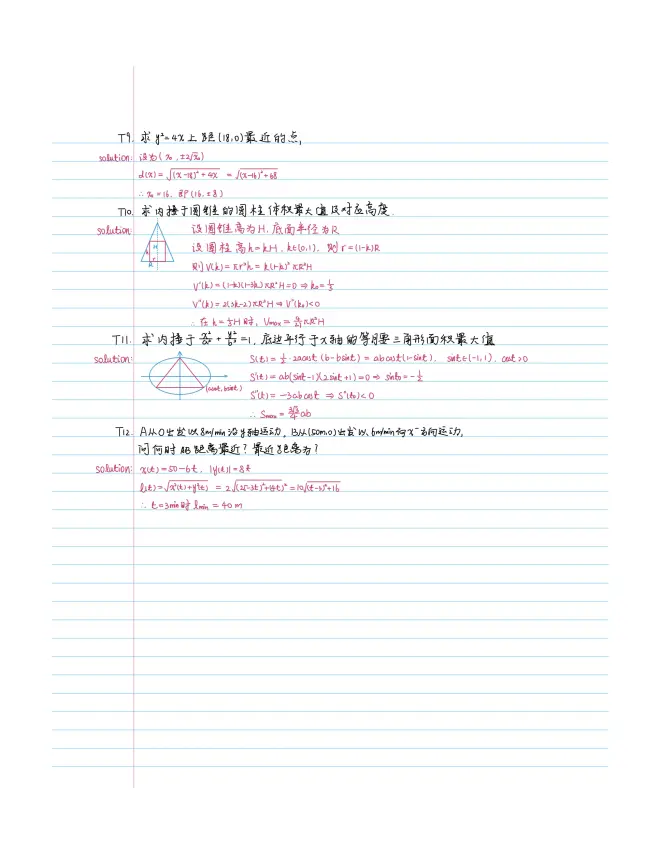 T9. 求 y²=4x 上 距 (18,0) 最近的点.
solution: 设为 (x₀, ±2√x₀)
d(x) = √((x-18)²+4x) = √((x-16)²+68)
∴ x₀=16, 即 (16, ±8)
T10. 求内接于圆锥的圆柱体积最大值及对应高度.
solution: 设圆锥高为H, 底面半径为R
设圆柱高h=kH, k∈(0,1), 则 r=(1-k)R
则 V(k) = πr²h = k(1-k)²πR²H
V'(k) = (1-k)(1-3k)πR²H=0 ⇒ k₀=1/3
V''(k) = 2(3k-2)πR²H ⇒ V''(k₀)<0
∴ 在 h=1/3H 时, Vmax = 4/27πR²H
T11. 求内接于 x²/a² + y²/b² =1, 底边平行于x轴的等腰三角形面积最大值
solution: S(t) = 1/2·2acost(b-bsint) = abcost(1-sint), sint∈(-1,1), cost>0
S'(t) = ab(sint-1)(2sint+1)=0 ⇒ sint₀=-1/2
(acost, bsint)
S''(t) = -3abcost ⇒ S''(t₀)<0
∴ Smax = 3√3/4 ab
T12. A从O出发以8m/min沿y轴运动, B从(50m,0)出发以6m/min向x⁻方向运动,
问何时AB距离最近? 最近距离为?
solution: x(t)=50-6t, |y(t)|=8t
l(t)=√(x²(t)+y²(t)) = 2√((25-3t)²+(4t)²) = 10√((t-3)²+16)
∴ t=3min时 lmin = 40 m